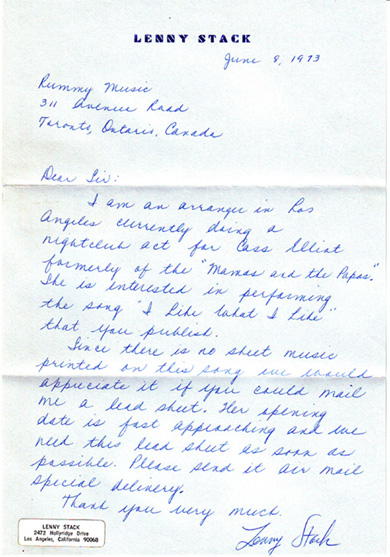 LENNY STACK
June 8, 1973
Rummy Music
311 Avenue Road
Toronto, Ontario, Canada
Dear Sir:
I am an arranger in Los
Angeles currently doing a
nightclub act for Cass Elliot
formerly of the "Mamas and the Papas".
She is interested in performing
the song "I Like What I Like"
that you publish.
Since there is no sheet music
printed on this song we would
appreciate it if you could mail
me a lead sheet. Her opening
date is fast approaching and we
need this lead sheet as soon as
possible. Please send it air mail
special delivery.
Thank you very much.
Lenny Stack
LENNY STACK
2472 Hollyridge Drive
Los Angeles, California 90068